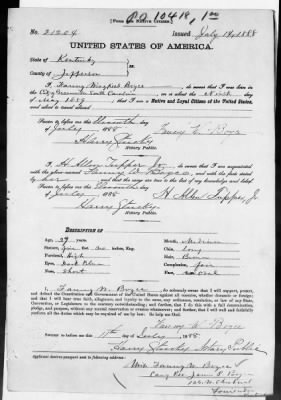 [FORM FOR NATIVE CITIZEN.]
10418, 1.00
No. 21204 Issued July 14, 1888
UNITED STATES OF AMERICA.
State of Kentucky
County of Jefferson
I, Fanny Boyce, do swear that I was born in the
City Greenville South Carolina, on or about the
of May 1859; that I am a Native and Loyal Citizen of the United States,
and about to travel abroad
Sworn to before me this Eleventh day
of July 1888
Notary Public.
I, H Allen Tupper Jr, do swear that I am acquainted
with the above-named Fanny W. Boyce, and with the facts stated
by her and that the same are true to the best of my knowledge and belief.
Sworn to before me this Eleventh day
of July 1888
H Allen Tupper, Jr
Notary Public.
DESCRIPTION OF
Age, 29 years. Mouth, Medium
Stature, five feet inches, Eng. Chin, Long
Forehead, High Hair, Brown
Eyes, Dark Complexion, fair
Nose, Short Face, oval
I, Fanny W. Boyce, do solemnly swear that I will support, protect,
and defend the Constitution and Government of the United States against all enemies, whether domestic or foreign;
and that I will bear true faith, allegiance, and loyalty to the same, any ordinance, resolution, or law of any State,
Convention, or Legislature to the contrary notwithstanding; and further, that I do this with a full determination,
pledge, and purpose, without any mental reservation or evasion whatsoever; and further, that I will well and faithfully
perform all the duties which may be required of me by law: So help me God.
Fanny W Boyce
Sworn to before me this 11th day of July 1888
Notary Public
Applicant desires passport sent to following address:
Miss Fanny W. Boyce
Care Rev James P. Boyce